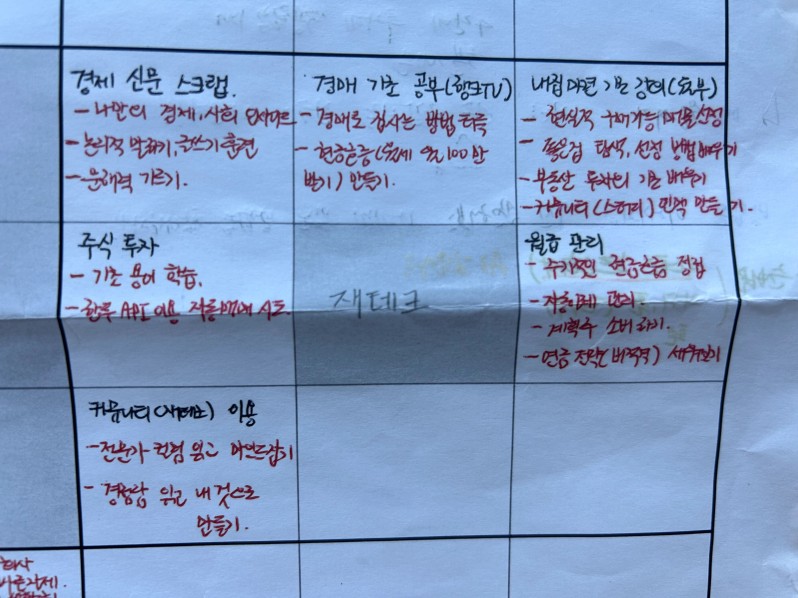 경제 신문 스크랩.
- 나만의 경제, 사회 인사이트
- 논리적 말하기, 글쓰기 훈련
- 문해력 기르기.
경매 기초 공부(행크TV)
- 경매로 집사는 방법 터득
- 현금흐름(월세 월100만
받기) 만들기.
내집마련 기초 강의(월부)
- 현실적 구매가능 매물선정
- 좋은집 탐색, 선정 방법배우기
- 부동산 투자의 기본 배우기
- 커뮤니티(스터디) 인맥 만들기.
주식 투자
- 기초 용어 학습.
- API 이용 자동매매 시도.
재테크
월급 관리
- 주기적인 현금흐름 점검
- 관리.
- 계획적 소비하기.
- 연금 전략 세워보기
커뮤니티(재테크) 이용
- 전문가 컬럼 읽고 마인드잡기
- 경험담 읽고 내것으로
만들기.